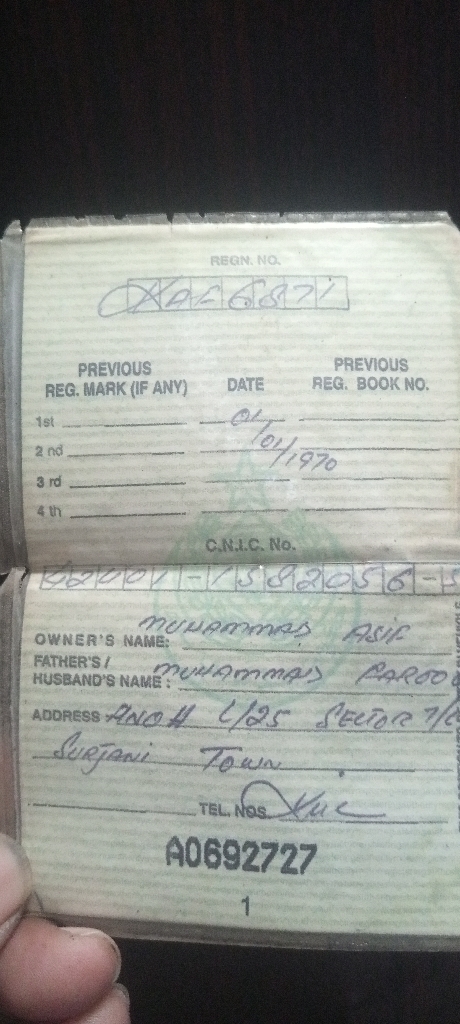 REGN. NO.
KAF6871
PREVIOUS
REG. MARK (IF ANY)
DATE
PREVIOUS
REG. BOOK NO.
1st
01/
2 nd
01/1970
3 rd
4 th
C.N.I.C. No.
42401-1582056-5
OWNER'S NAME: MUHAMMAD ASIF
FATHER'S /
HUSBAND'S NAME : MUHAMMAD FAROO
ADDRESS L/25 SECTOR 7/
SURJANI TOWN
TEL. NOS
A0692727
1